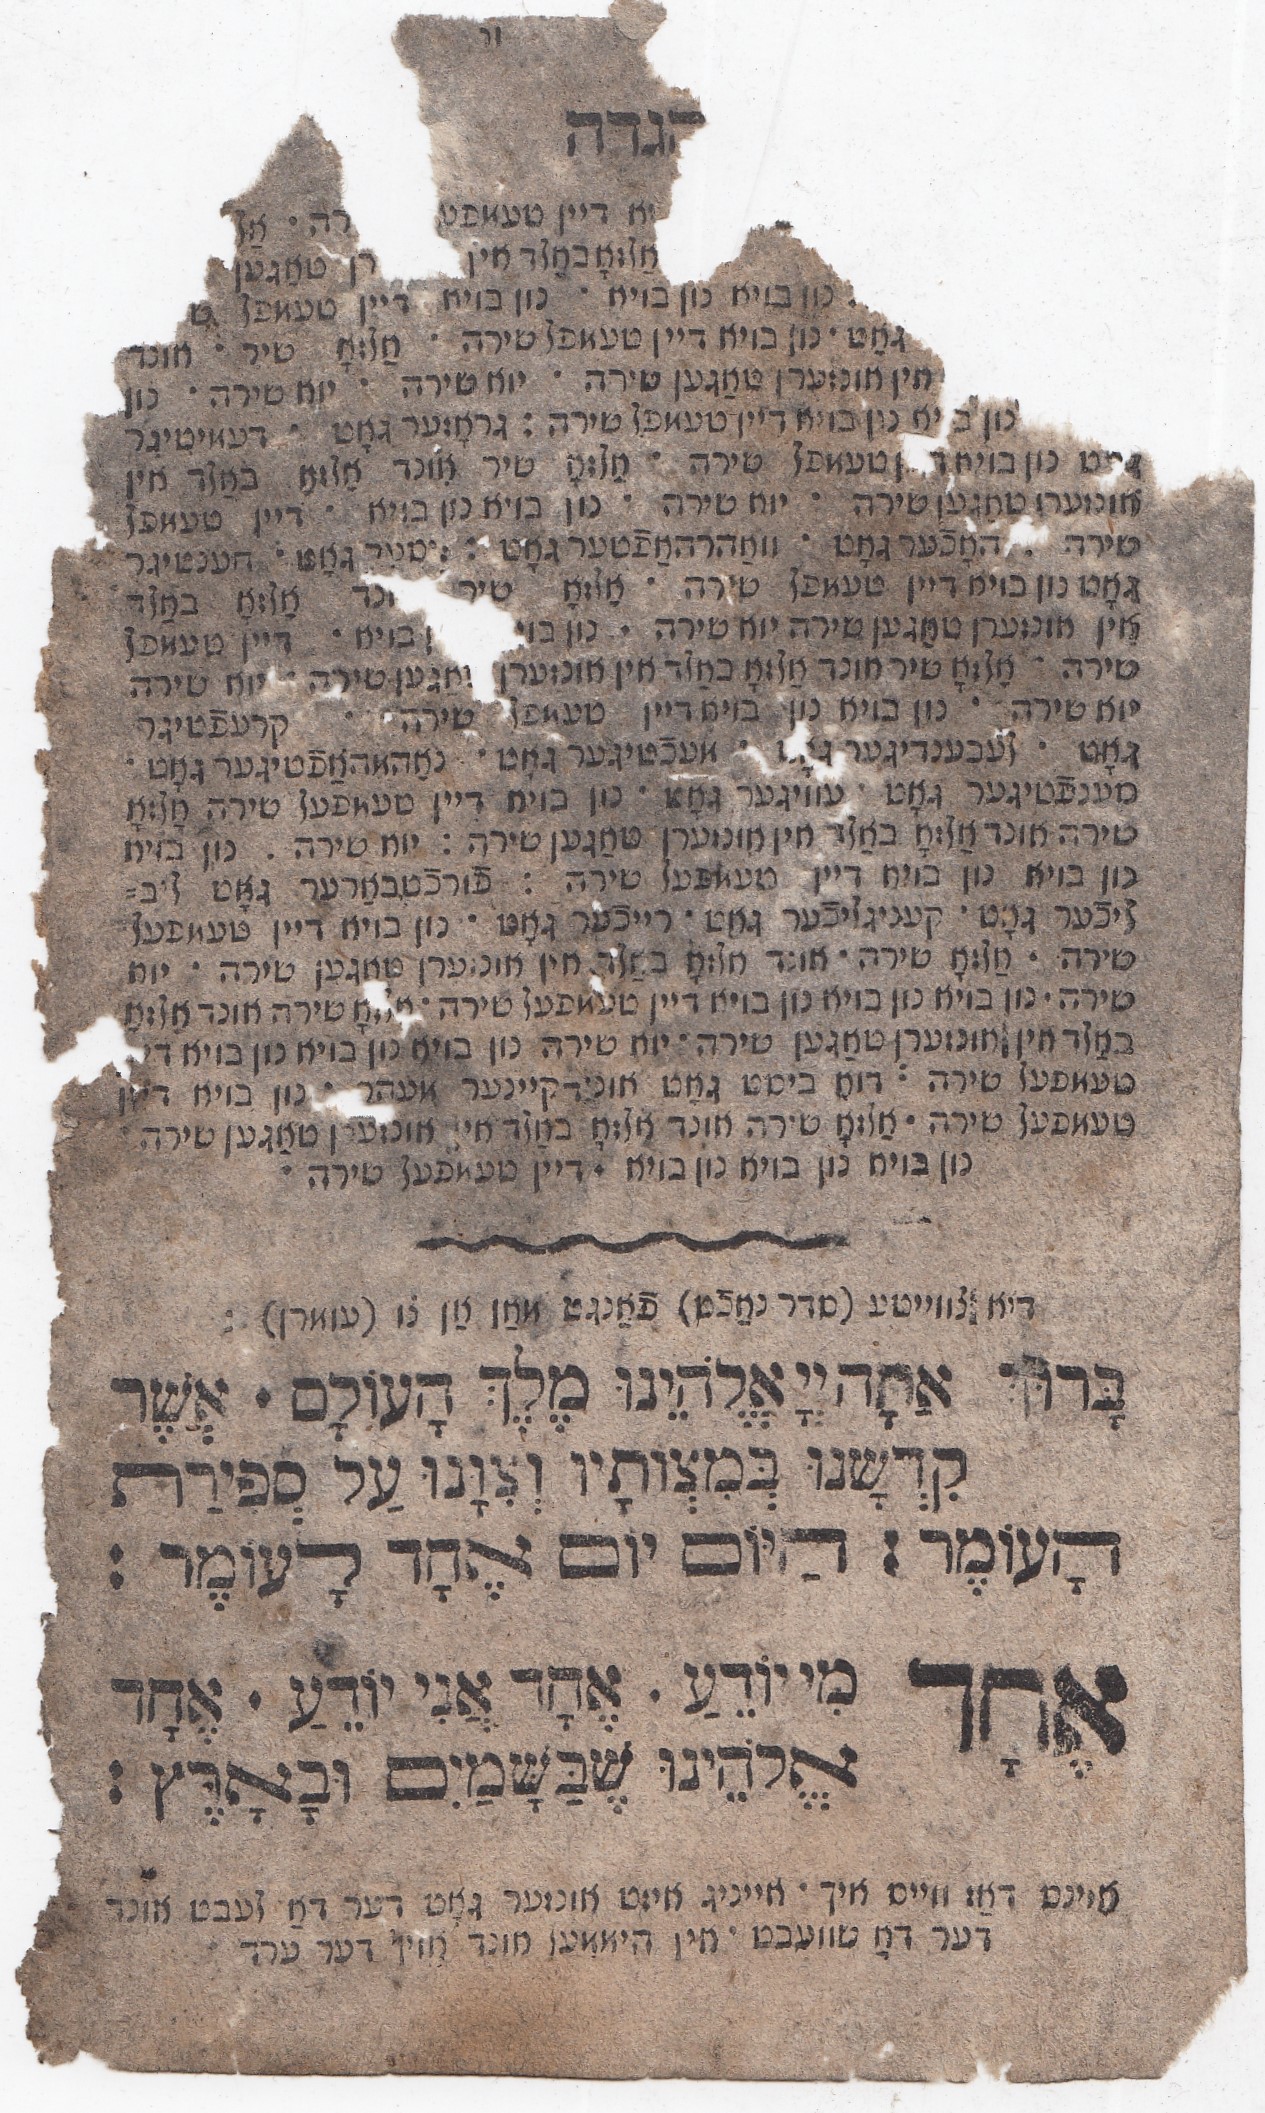 הגדה
דיין טעמפע רה · אַל
אַלזאָ באַלד אין רן טאַגען
נון בויא נון בויא · נון בויא דיין טעמפל
גאָט · נון בויא דיין טעמפל שירה · אַלזאָ שיר · אונד
אין אונזערן טאַגען שירה · יוא שירה · יוא שירה · נון
נון בויא דיין טעמפל שירה : גראָזער גאָט · דעמיטיגר
נון בויא טעמפל שירה · אַלזאָ שיר אונד אַלזאָ באַלד אין
אונזערן טאַגען שירה · יוא שירה · נון בויא נון בויא · דיין טעמפל
שירה · האָכֿער גאָט · וואַהרהאַפֿטער גאָט : גאָט · חענטיגר
גאָט נון בויא דיין טעמפל שירה · אַלזאָ שיר אַלזאָ באַלד
אין אונזערן טאַגען שירה יוא שירה · נון בויא · דיין טעמפל
שירה · אַלזאָ שיר אונד אַלזאָ באַלד אין אונזערן שירה · יוא שירה
יוא שירה · נון בויא נון בויא דיין טעמפל שירה · קרעפֿטיגר
גאָט · לעבענדיגער גאָט · מעכֿטיגער גאָט · נאַהמהאַפֿטיגער גאָט ·
סענפֿטיגער גאָט · עוויגער גאָט · נון בויא דיין טעמפעל שירה אַלזאָ
שירה אונד אַלזאָ באַלד אין אונזערן טאַגען שירה : יוא שירה . נון בויא
נון בויא נון בויא דיין טעמפעל שירה : פֿורכֿטבאַרער גאָט ליב=
ליכֿער גאָט · קעניגליכֿער גאָט · רייכֿער גאָט · נון בויא דיין טעמפעל
שירה · אַלזאָ שירה · אונד אַלזאָ באַלד אין אונזערן טאַגען שירה · יוא
שירה · נון בויא נון בויא נון בויא דיין טעמפעל שירה · אַלזאָ שירה אונד אַלזאָ
באַלד אין אונזערן טאַגען שירה · יוא שירה נון בויא נון בויא נון בויא
טעמפעל שירה : דוא ביסט גאָט אונד קיינער מעהר · נון בויא דיין
טעמפעל שירה · אַלזאָ שירה אונד אַלזאָ באַלד אין אונזערן טאַגען שירה ·
נון בויא נון בויא נון בויא · דיין טעמפעל שירה ·
דיא צווייטע (סדר נאַכֿט) פֿאַנגט מאַן אַן צו (עומרן) :
בָּרוּךְ אַתָּה יְיָ אֱלֹהֵינוּ מֶלֶךְ הָעוֹלָם · אֲשֶׁר
קִדְּשָׁנוּ בְּמִצְוֹתָיו וְצִוָּנוּ עַל סְפִירַת
הָעוֹמֶר : הַיּוֹם יוֹם אֶחָד לָעוֹמֶר :
אֶחָד מִי יוֹדֵעַ · אֶחָד אֲנִי יוֹדֵעַ · אֶחָד
אֱלֹהֵינוּ שֶׁבַּשָּׁמַיִם וּבָאָרֶץ :
איינס דאַז ווייס איך · אייניג איזט אונזער גאָט דער דאַ לעבט אונד
דער דאַ שוועבט · אין היממעל אונד אויף דער ערד